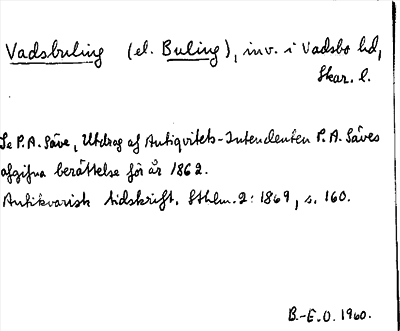 Vadsbuling (el. Buling), inv. i Vadsbo hd,
Skar. l.
Se P. A. Säve, Utdrag af Antiqvitets-Intendenten P. A. Säves
afgifna berättelse för år 1862.
Antikvarisk tidskrift. Sthlm. 2: 1869, s. 160.
B.-E. O. 1960.